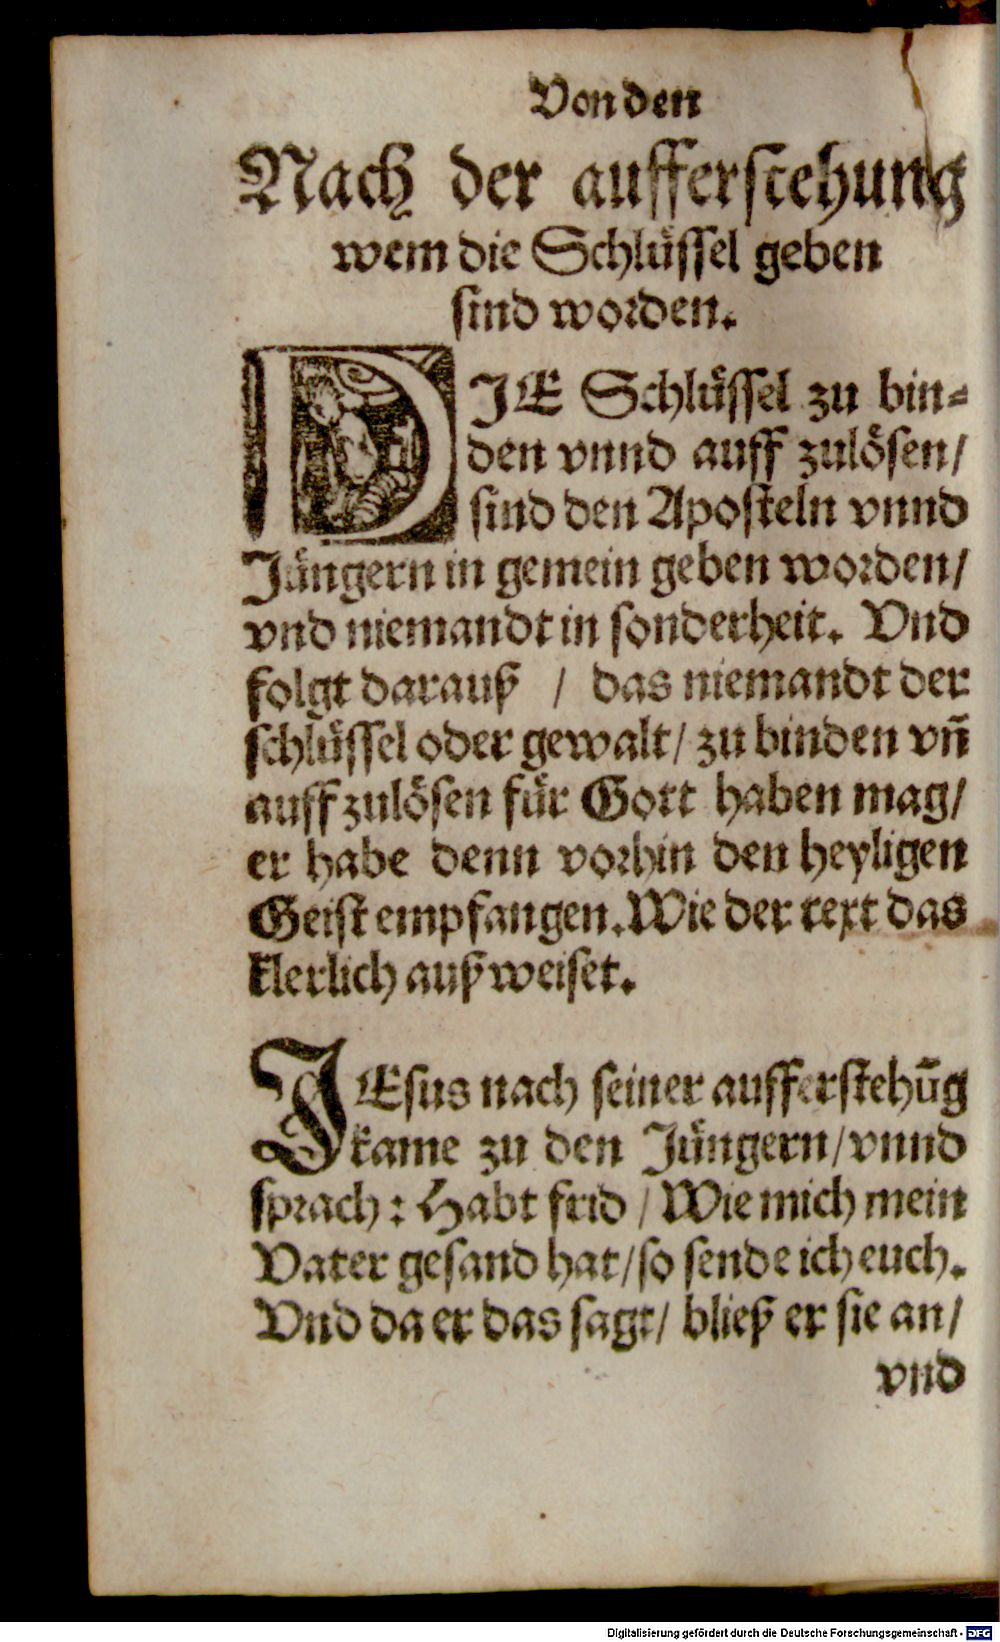 Von den
Nach der aufferstehung
wem die Schlüssel geben
sind worden.
DJE Schlüssel zu bin⸗
den vnnd auff zulösen/
sind den Aposteln vnnd
Jüngern in gemein geben worden/
vnd niemandt in sonderheit. Vnd
folgt darauß / das niemandt der
schlüssel oder gewalt/ zu binden vn̄
auff zulösen für Gott haben mag/
er habe denn vorhin den heyligen
Geist empfangen. Wie der text das
klerlich außweiset.
JEsus nach seiner aufferstehūg
kame zu den Jüngern/ vnnd
sprach: Habt frid / Wie mich mein
Vater gesand hat/ so sende ich euch.
Vnd da er das sagt/ bließ er sie an/
vnd
Digitalisierung gefördert durch die Deutsche Forschungsgemeinschaft - DFG